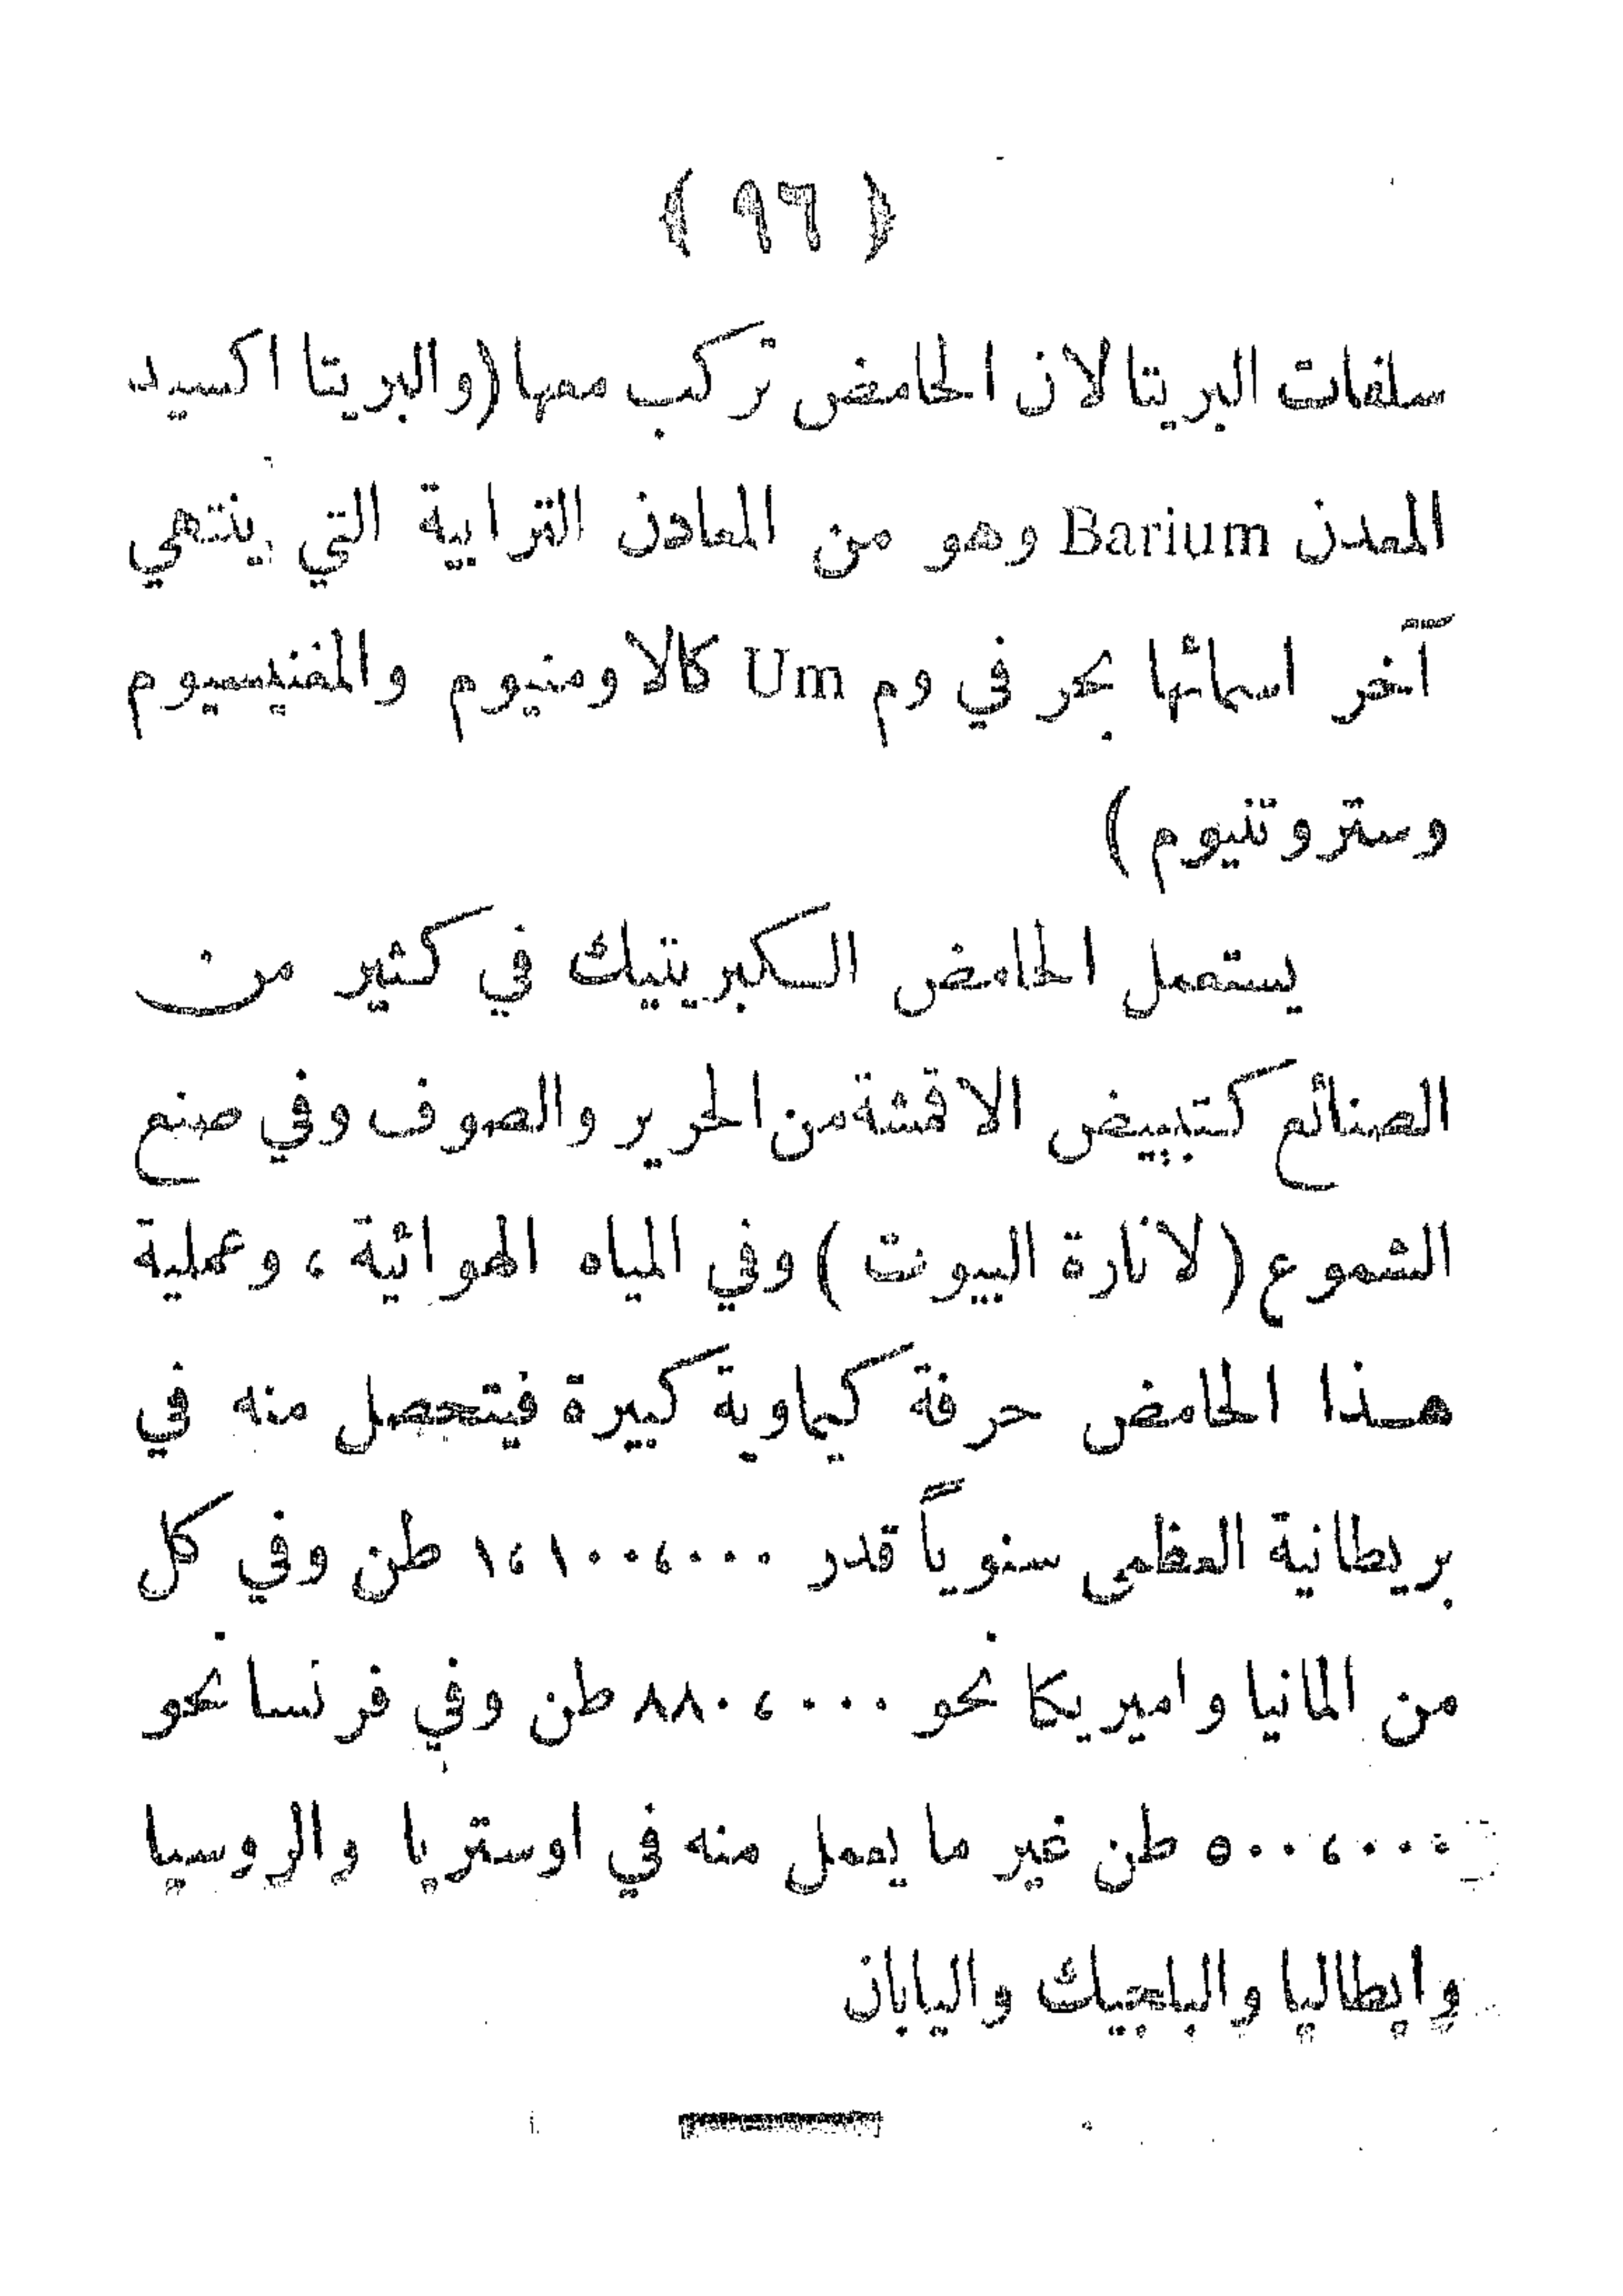 ﴿ ٩٦ ﴾
سلفات البريتا لان الحامض تركب معها (والبريتا اكسيد
المعدن Barium وهو من المعادن الترابية التي ينتهي
آخر اسمائها بحر في وم Um كالاومنيوم والمغنيسيوم
وستروتنيوم )
يستعمل الحامض الكبريتيك في كثير من
الصنائع كتبييض الاقمشة من الحرير والصوف وفي صنع
الشموع (لانارة البيوت ) وفي المياه الهوائية ، وعملية
هذا الحامض حرفة كيماوية كبيرة فيتحصل منه في
بريطانية العظمى سنوياً قدر ١،١٠٠،٠٠٠ طن وفي كل
من المانيا واميريكا نحو ٨٨٠،٠٠٠ طن وفي فرنسا نحو
٥٠٠،٠٠٠ طن غير ما يعمل منه في اوستريا والروسيا
وايطاليا والبلجيك واليابان